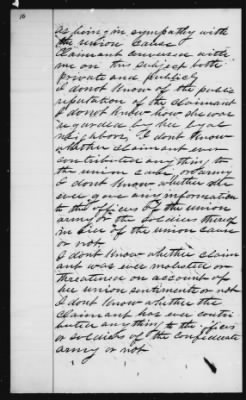 10
as being in sympathy with
the union cause
Claimant conversed with
me on this subject both
private and publicly
I do not Know of the public
reputation of the claimant
I do not Know how she was
regarded by her loyal
neighbors, I dont Know
whether claimant ever
contributed anything to
the union cause or army
I dont Know whether she
ever gave any information
to the officers of the union
army or the soldiers thereof
in aid of the union cause
or not
I dont Know whether claim
ant was ever molested or
threatened on account of
her union sentiments or not
I dont Know whether the
Claimant has ever contri
buted anything to the officers
or soldiers of the confederate
army or not